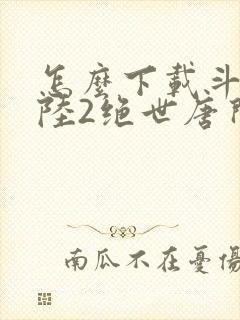 怎麼下載斗
陸2绝世唐門
南瓜不在憂傷